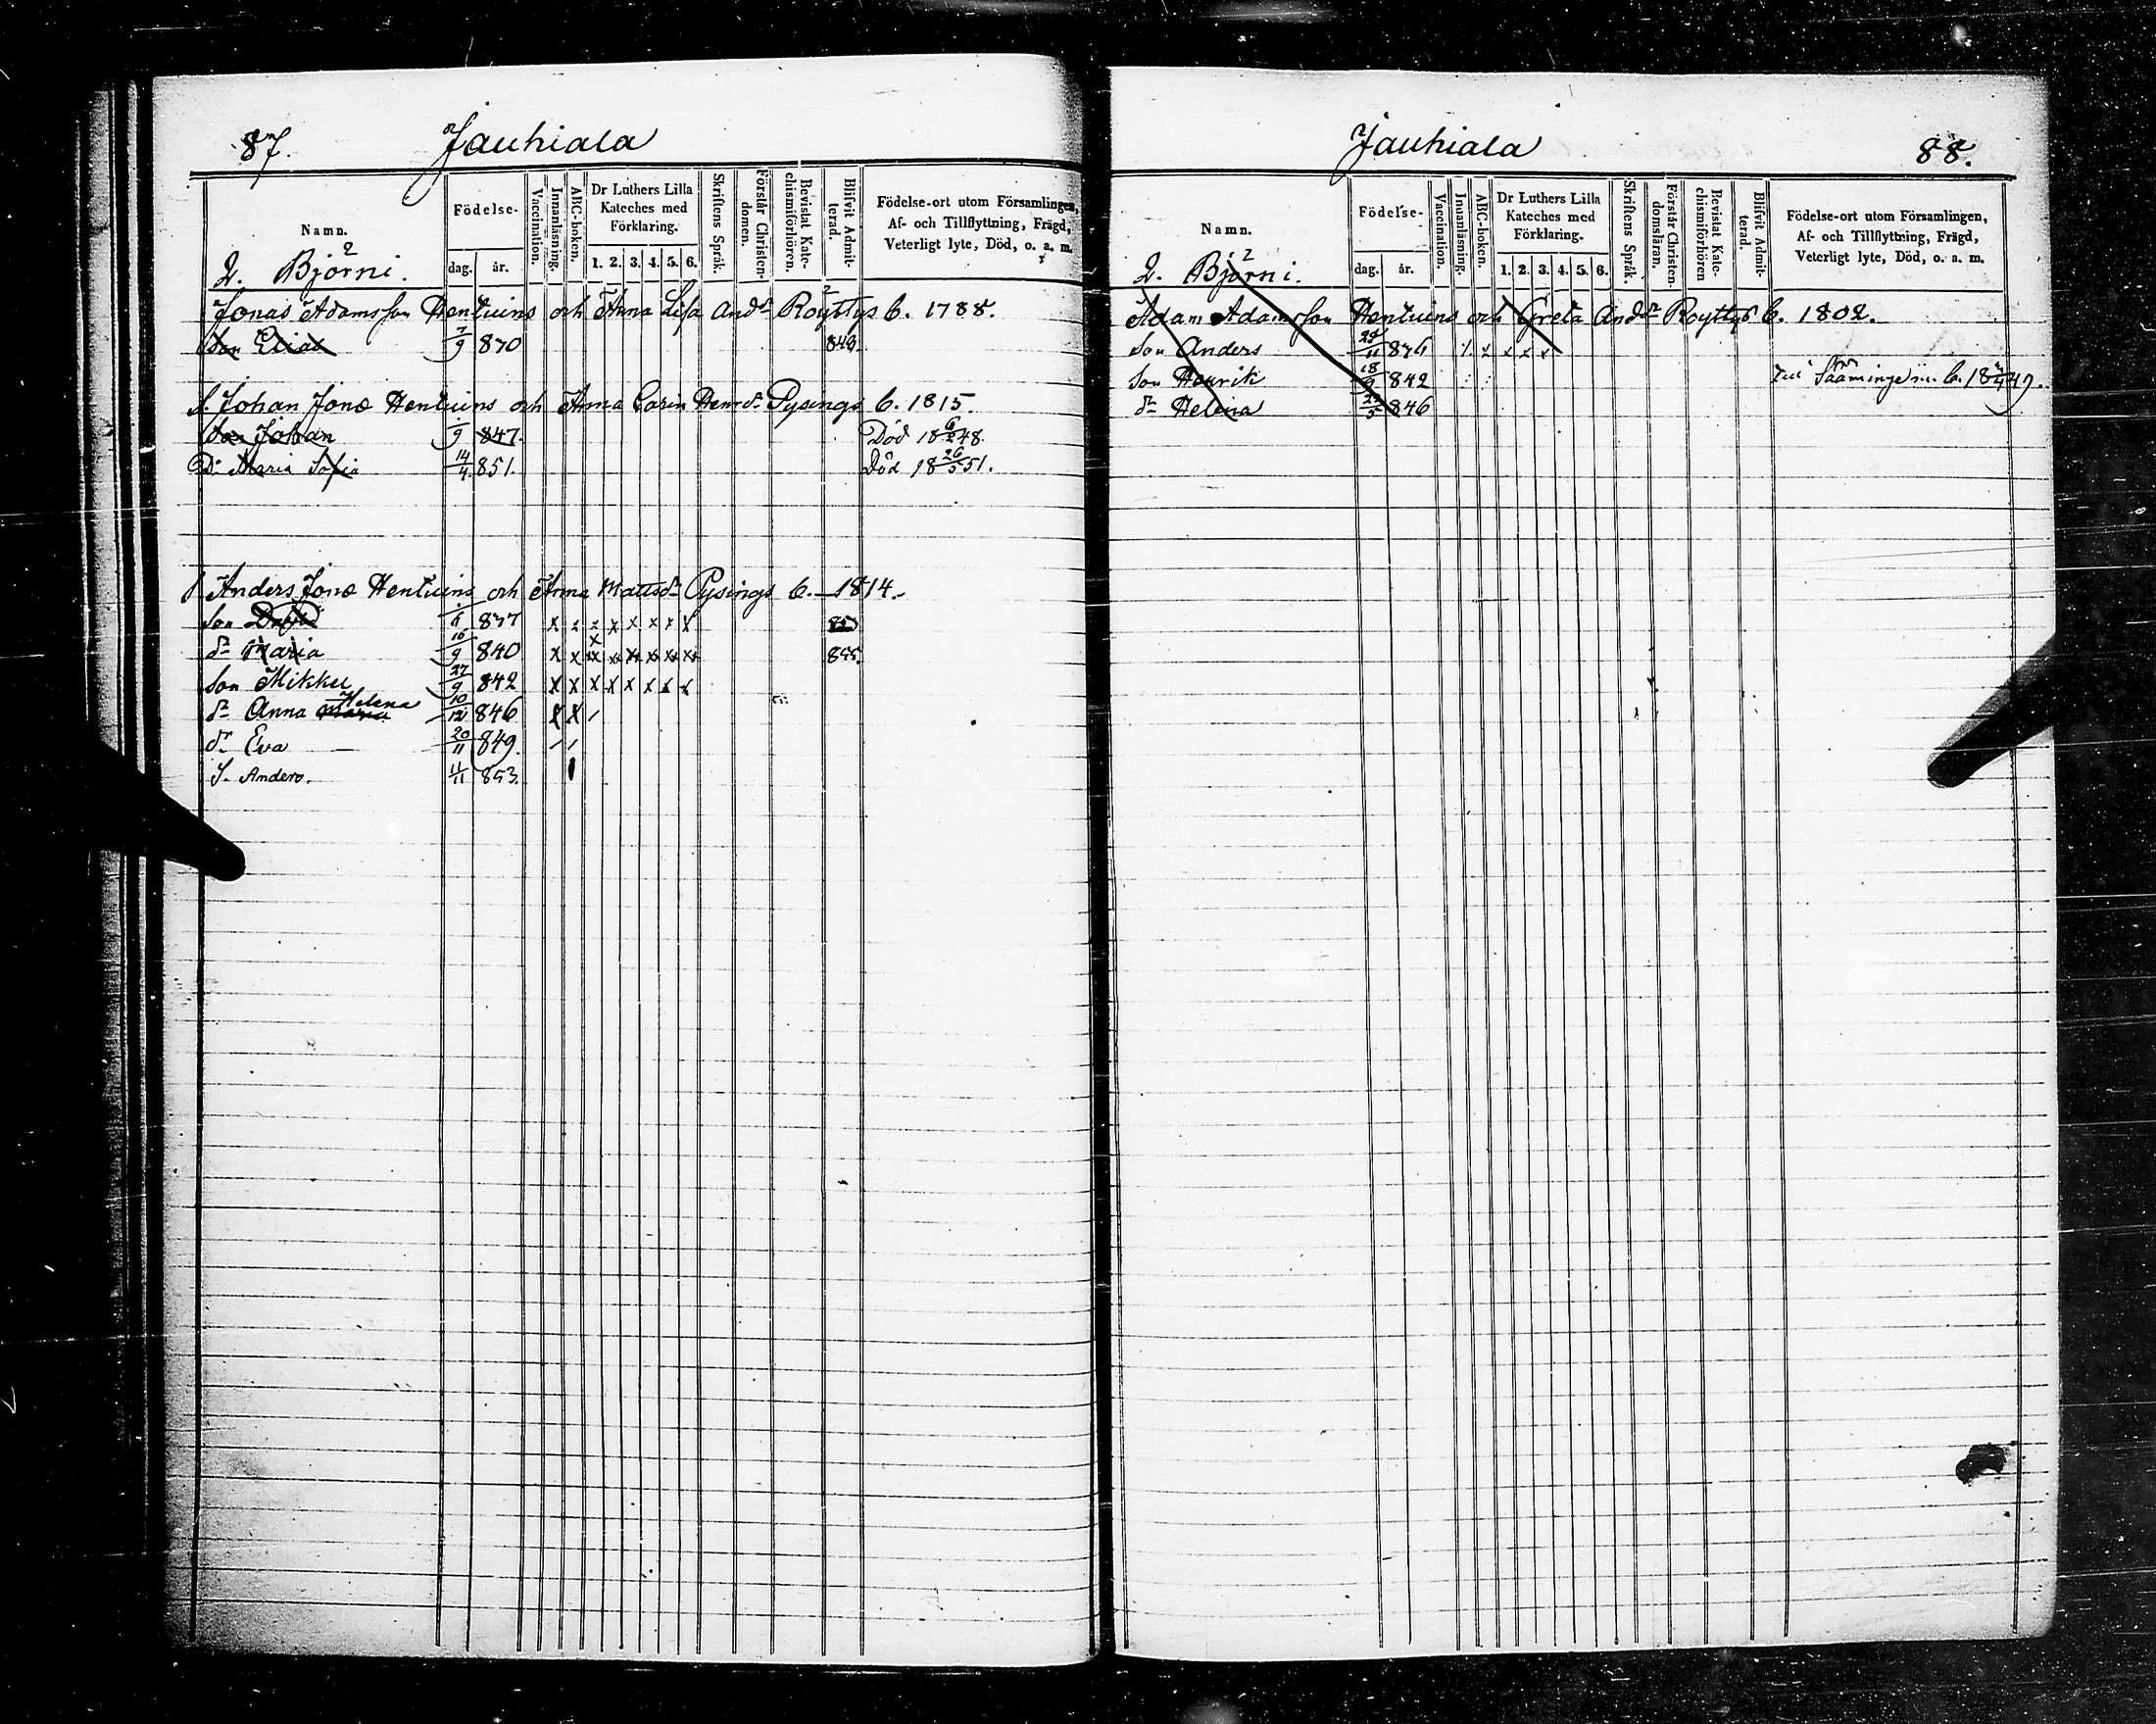 87. Jauhiala
Namn.
Födelse-
dag. år.
Vaccination.
Innanläsning.
ABC-boken.
Dr Luthers Lilla Kateches med Förklaring.
1. 2. 3. 4. 5. 6.
Skriftens Språk.
Förstår Christen-domen.
Bevistat Kate-chismiförhören.
Blifvit Admit-terad.
Födelse-ort utom Församlingen,
Af- och Tillflyttning, Frägd,
Veterligt lyte, Död, o. a. m.
2. Björni. 2
Jonas Adamsson Hentuins och Anna Lisa Andsdr Royttys C. 1788.
Son Elias 7/9 830
S. Johan Jonæ Hentuins och Anna Carin Henrdr Pysings C. 1815.
Son Johan 847. Död 18 6/2 48.
Dr Maria Sofia 14/4 851. Död 18 26/5 51.
S. Anders Jonæ Hentuins och Anna Mattsdr Pysings C. 1814.
Son David 837 x x x x x x x x
dr Maria 16/9 840 x x x x x x x x 855.
Son Mikkel 27/9 842 x x x x x x x x
dr Anna Maria Helena 10/12 846 x x /
dr Eva 20/11 849. / /
S. Anders. 11/11 853.
Jauhiala 88.
Namn.
Födelse-
dag. år.
Vaccination.
Innanläsning.
ABC-boken.
Dr Luthers Lilla Kateches med Förklaring.
1. 2. 3. 4. 5. 6.
Skriftens Språk.
Förstår Christen-domsläran.
Bevistat Kate-chismiförhören
Blifvit Admit-terad.
Födelse-ort utom Församlingen,
Af- och Tillflyttning, Frägd,
Veterligt lyte, Död, o. a. m.
2. Björni. 2
Adam Adamsson Hentuins och Greta Andsdr Royttys C. 1802.
Son Anders 836 x x x
Son Henrik 18/9 842 till Sääminge
dr Helena 846